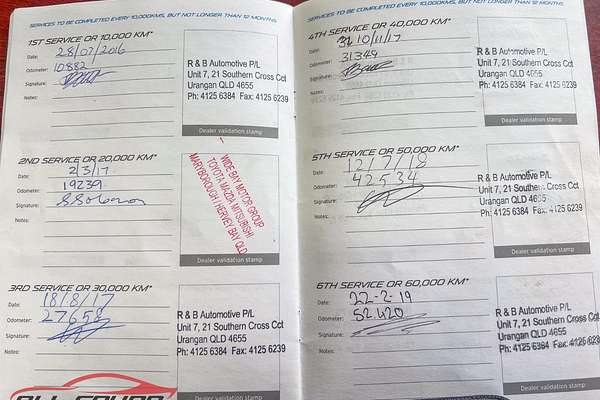 SERVICES TO BE COMPLETED EVERY 10,000KMS, BUT NOT LONGER THAN 12 MONTHS.
1ST SERVICE OR 10,000 KM*
Date: 28/07/2016
Odometer: 10882
Signature:
Notes:
R & B Automotive P/L
Unit 7, 21 Southern Cross Cct
Urangan QLD 4655
Ph: 4125 6384 Fax: 4125 6239
Dealer validation stamp
2ND SERVICE OR 20,000 KM*
Date: 2/3/17.
Odometer: 19239
Signature:
Notes:
WIDE BAY MOTOR GROUP
TOYOTA MAZDA MITSUBISHI
MARYBOROUGH | HERVEY BAY QLD
Dealer validation stamp
3RD SERVICE OR 30,000 KM*
Date: 18/8/17
Odometer: 27658
Signature:
Notes:
R & B Automotive P/L
Unit 7, 21 Southern Cross Cct
Urangan QLD 4655
Ph: 4125 6384 Fax: 4125 6239
SERVICES TO BE COMPLETED EVERY 10,000KMS, BUT NOT LONGER THAN 12 MONTHS.
4TH SERVICE OR 40,000 KM*
Date: 10/11/17
Odometer: 31349
Signature:
Notes:
R & B Automotive P/L
Unit 7, 21 Southern Cross Cct
Urangan QLD 4655
Ph: 4125 6384 Fax: 4125 6239
Dealer validation stamp
5TH SERVICE OR 50,000 KM*
Date: 12/7/18
Odometer: 42534
Signature:
Notes:
R & B Automotive P/L
Unit 7, 21 Southern Cross Cct
Urangan QLD 4655
Ph: 4125 6384 Fax: 4125 6239
Dealer validation stamp
6TH SERVICE OR 60,000 KM*
Date: 22-2-19
Odometer: 52420
Signature:
Notes:
R & B Automotive P/L
Unit 7, 21 Southern Cross Cct
Urangan QLD 4655
Ph: 4125 6384 Fax: 4125 6239